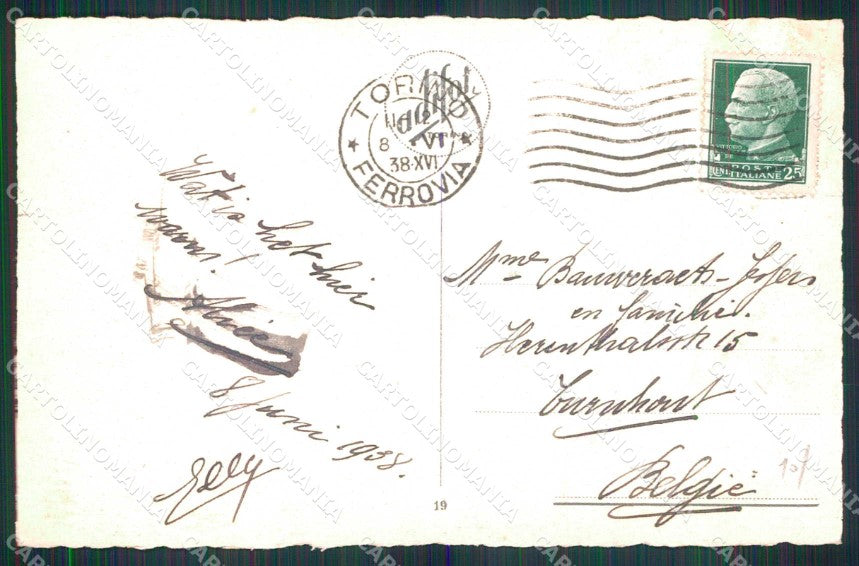 Wat is het hier
warm!
Alice
8 Juni 1938.
Elly
TORINO
8 VI
38·XVI
FERROVIA
POSTE
ITALIANE 25
Mme Bauweraets-Jessers
en familie.
Herenthalsstr 15
Turnhout
België
107
19
CARTOLINOMANIA